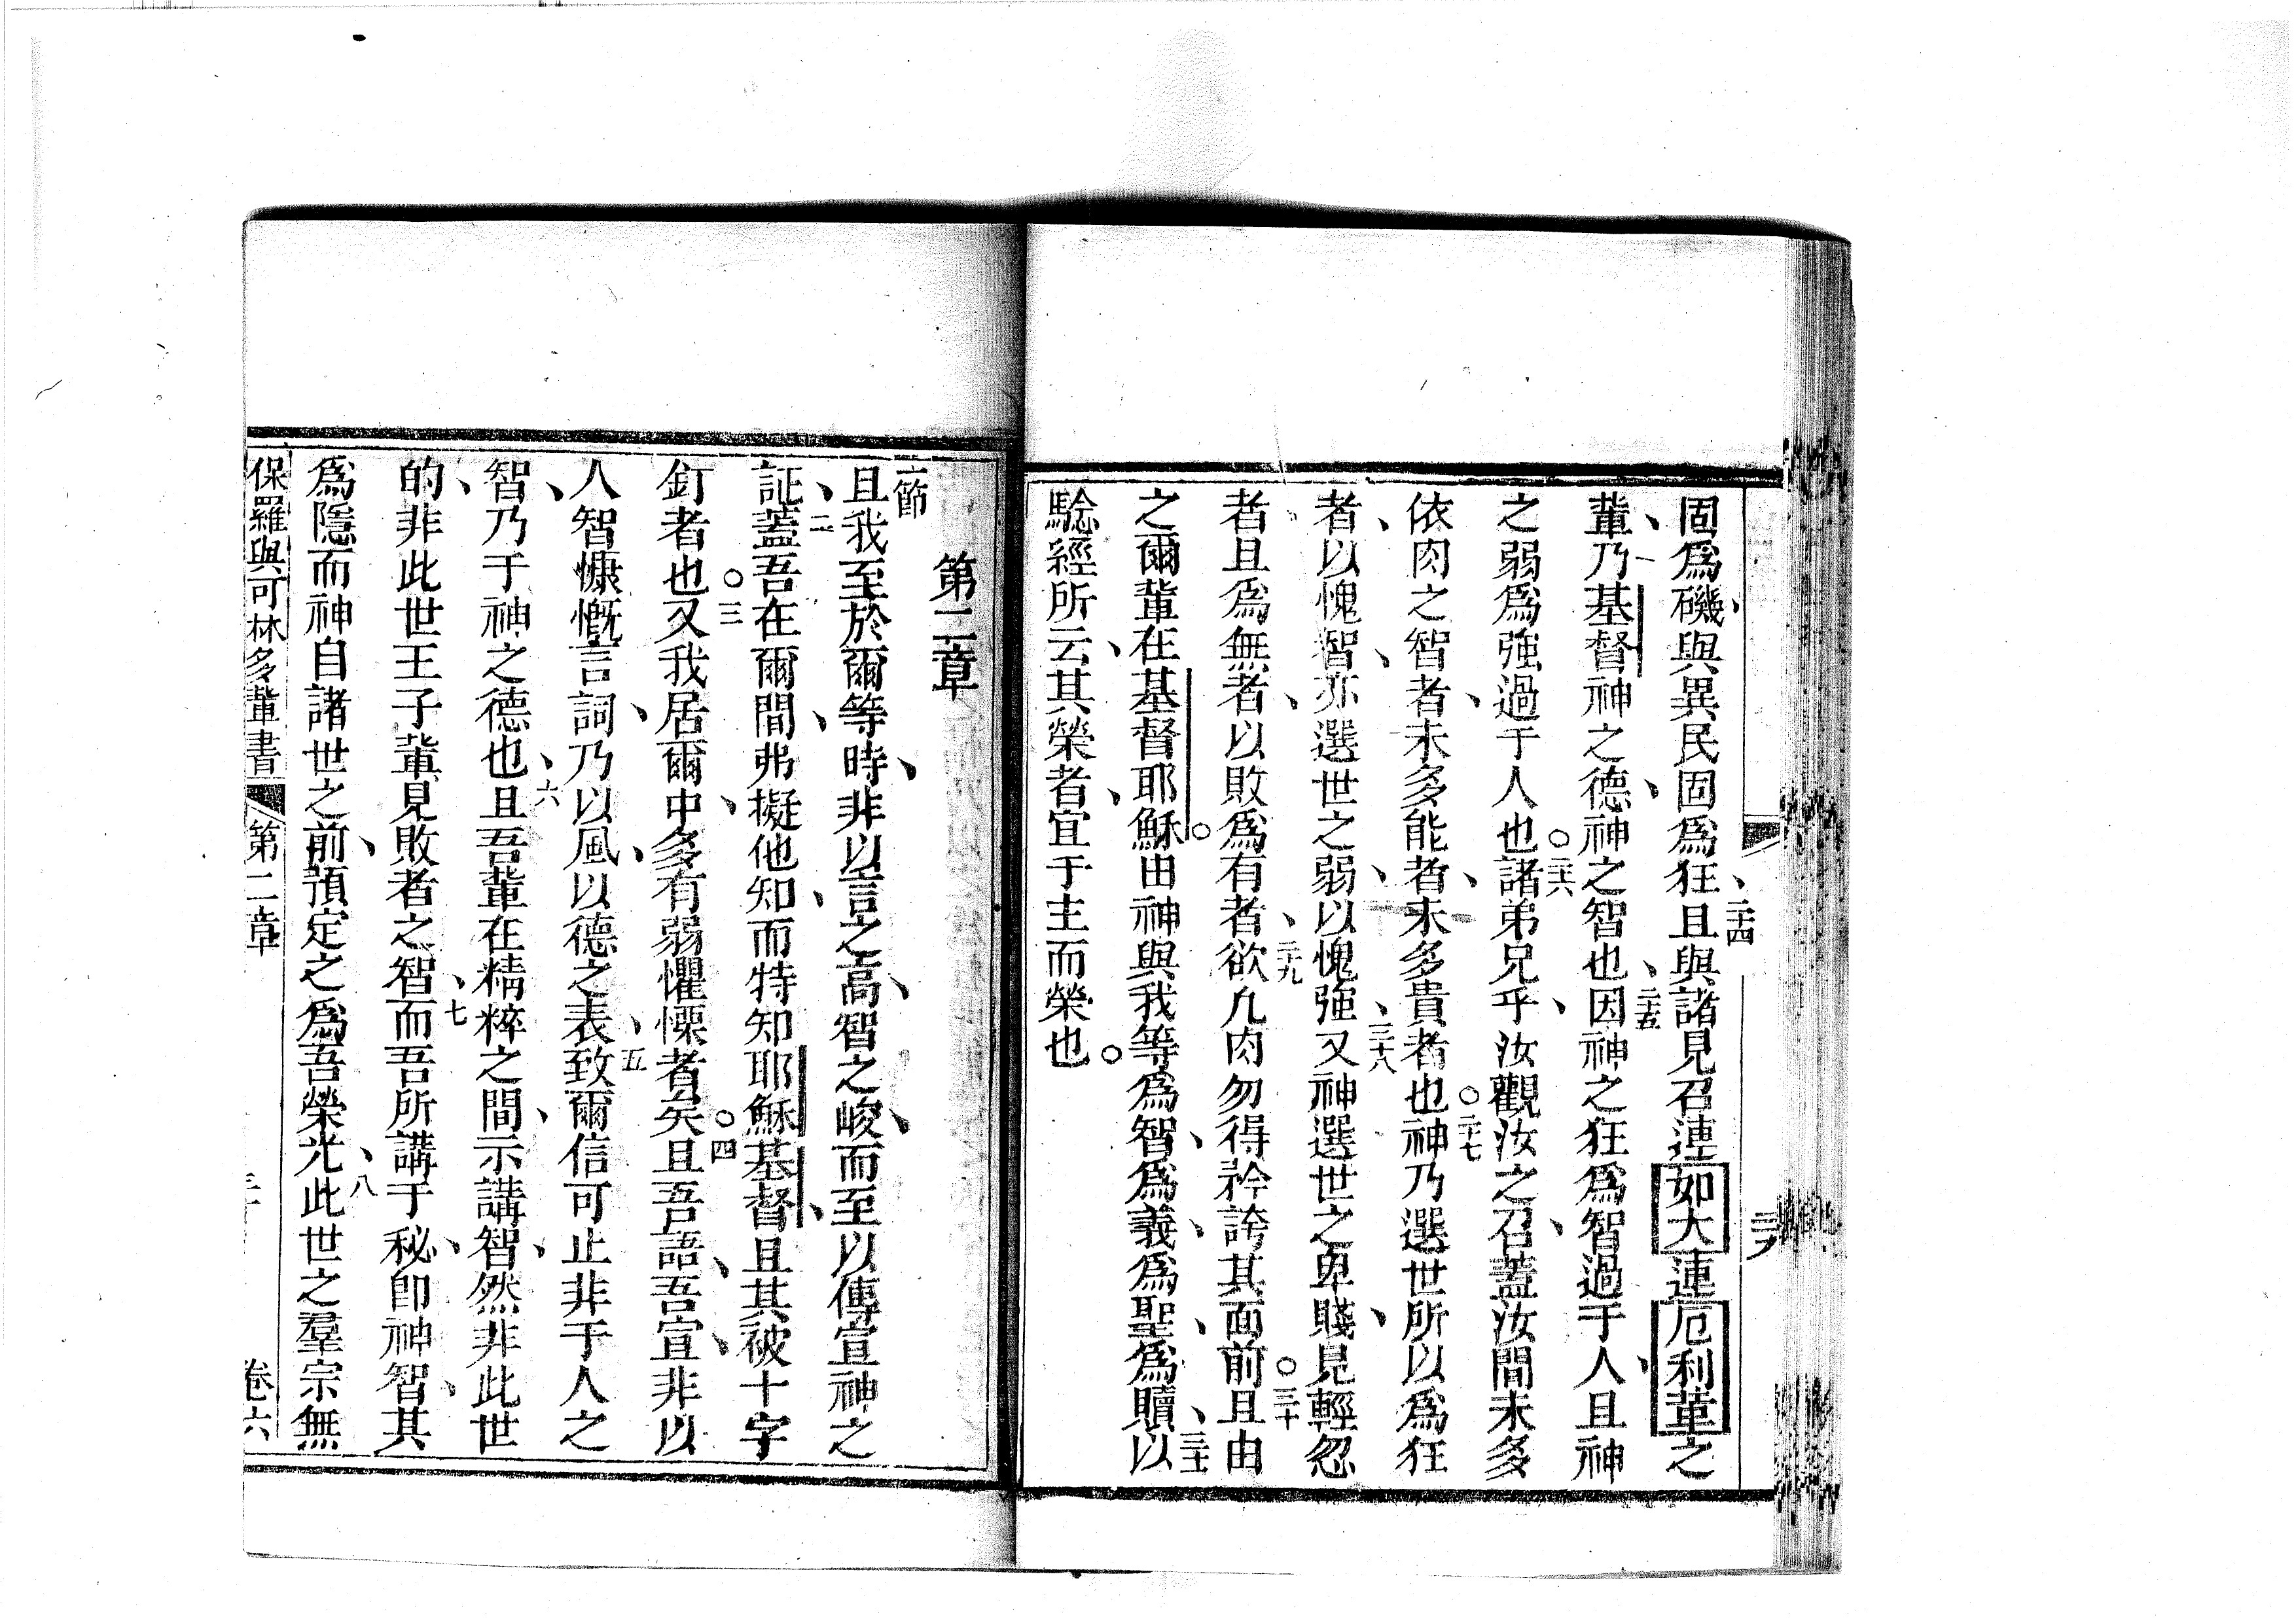 固爲磯、與異民固爲狂、二十四且與諸見召連如大連厄利革之
輩、乃基督神之德、神之智也、二十五因神之狂爲智過于人、且神
之弱爲強過于人也○二十六諸弟兄乎、汝觀汝之召、蓋汝間未多
依肉之智者、未多能者、未多貴者也○二十七神乃選世所以爲狂
者、以愧智、亦選世之弱、以愧強、二十八又神選世之卑賤、見輕忽
者、且爲無者、以敗爲有者、二十九欲凡肉勿得矜誇其面前○三十且由
之爾輩在基督耶穌○由神與我等爲智、爲義、爲聖、爲贖、三十一以
驗經所云、其榮者、宜于主而榮也○
第二章
一節
且我至於爾等時、非以言之高、智之峻、而至以傳宣神之
証、二蓋吾在爾間、弗擬他知、而特知耶穌基督、且其被十字
釘者也○三又我居爾中、多有弱懼慄者矣○四且吾語、吾宣、非以
人智慷慨言詞、乃以風、以德之表、五致爾信可止非于人之
智、乃于神之德也、六且吾輩在精粹之間、示講智、然非此世
的、非此世王子輩見敗者之智、七而吾所講于秘、卽神智、其
爲隱而神自諸世之前、預定之爲吾榮光、八此世之羣宗無
保羅與可林多輩書 第二章 卷六